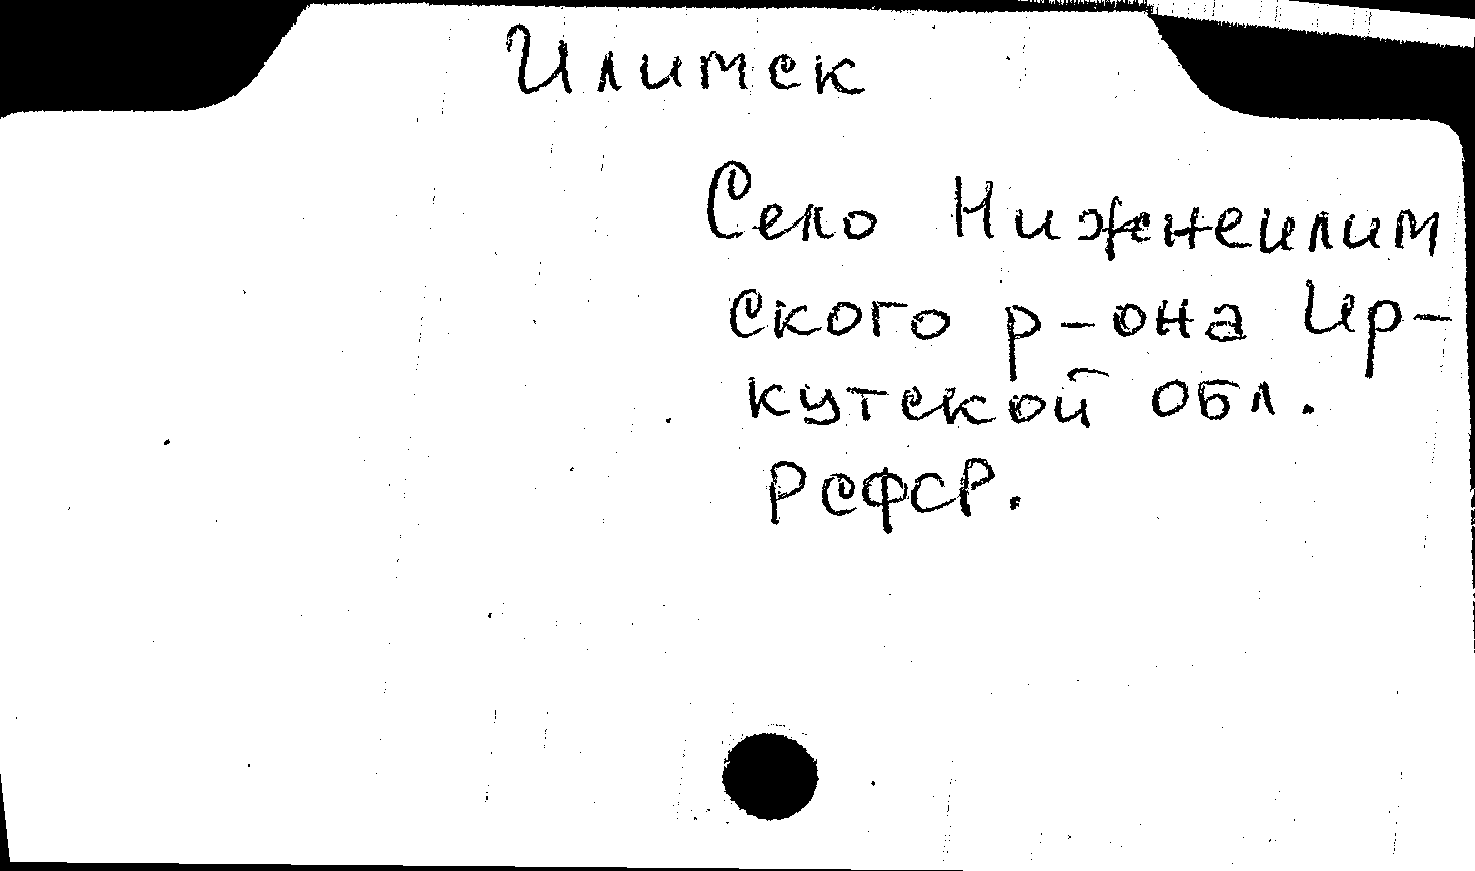 Илимск
Село Нижнеилим
ского р-она Ир-
кутской обл.
РСФСР.